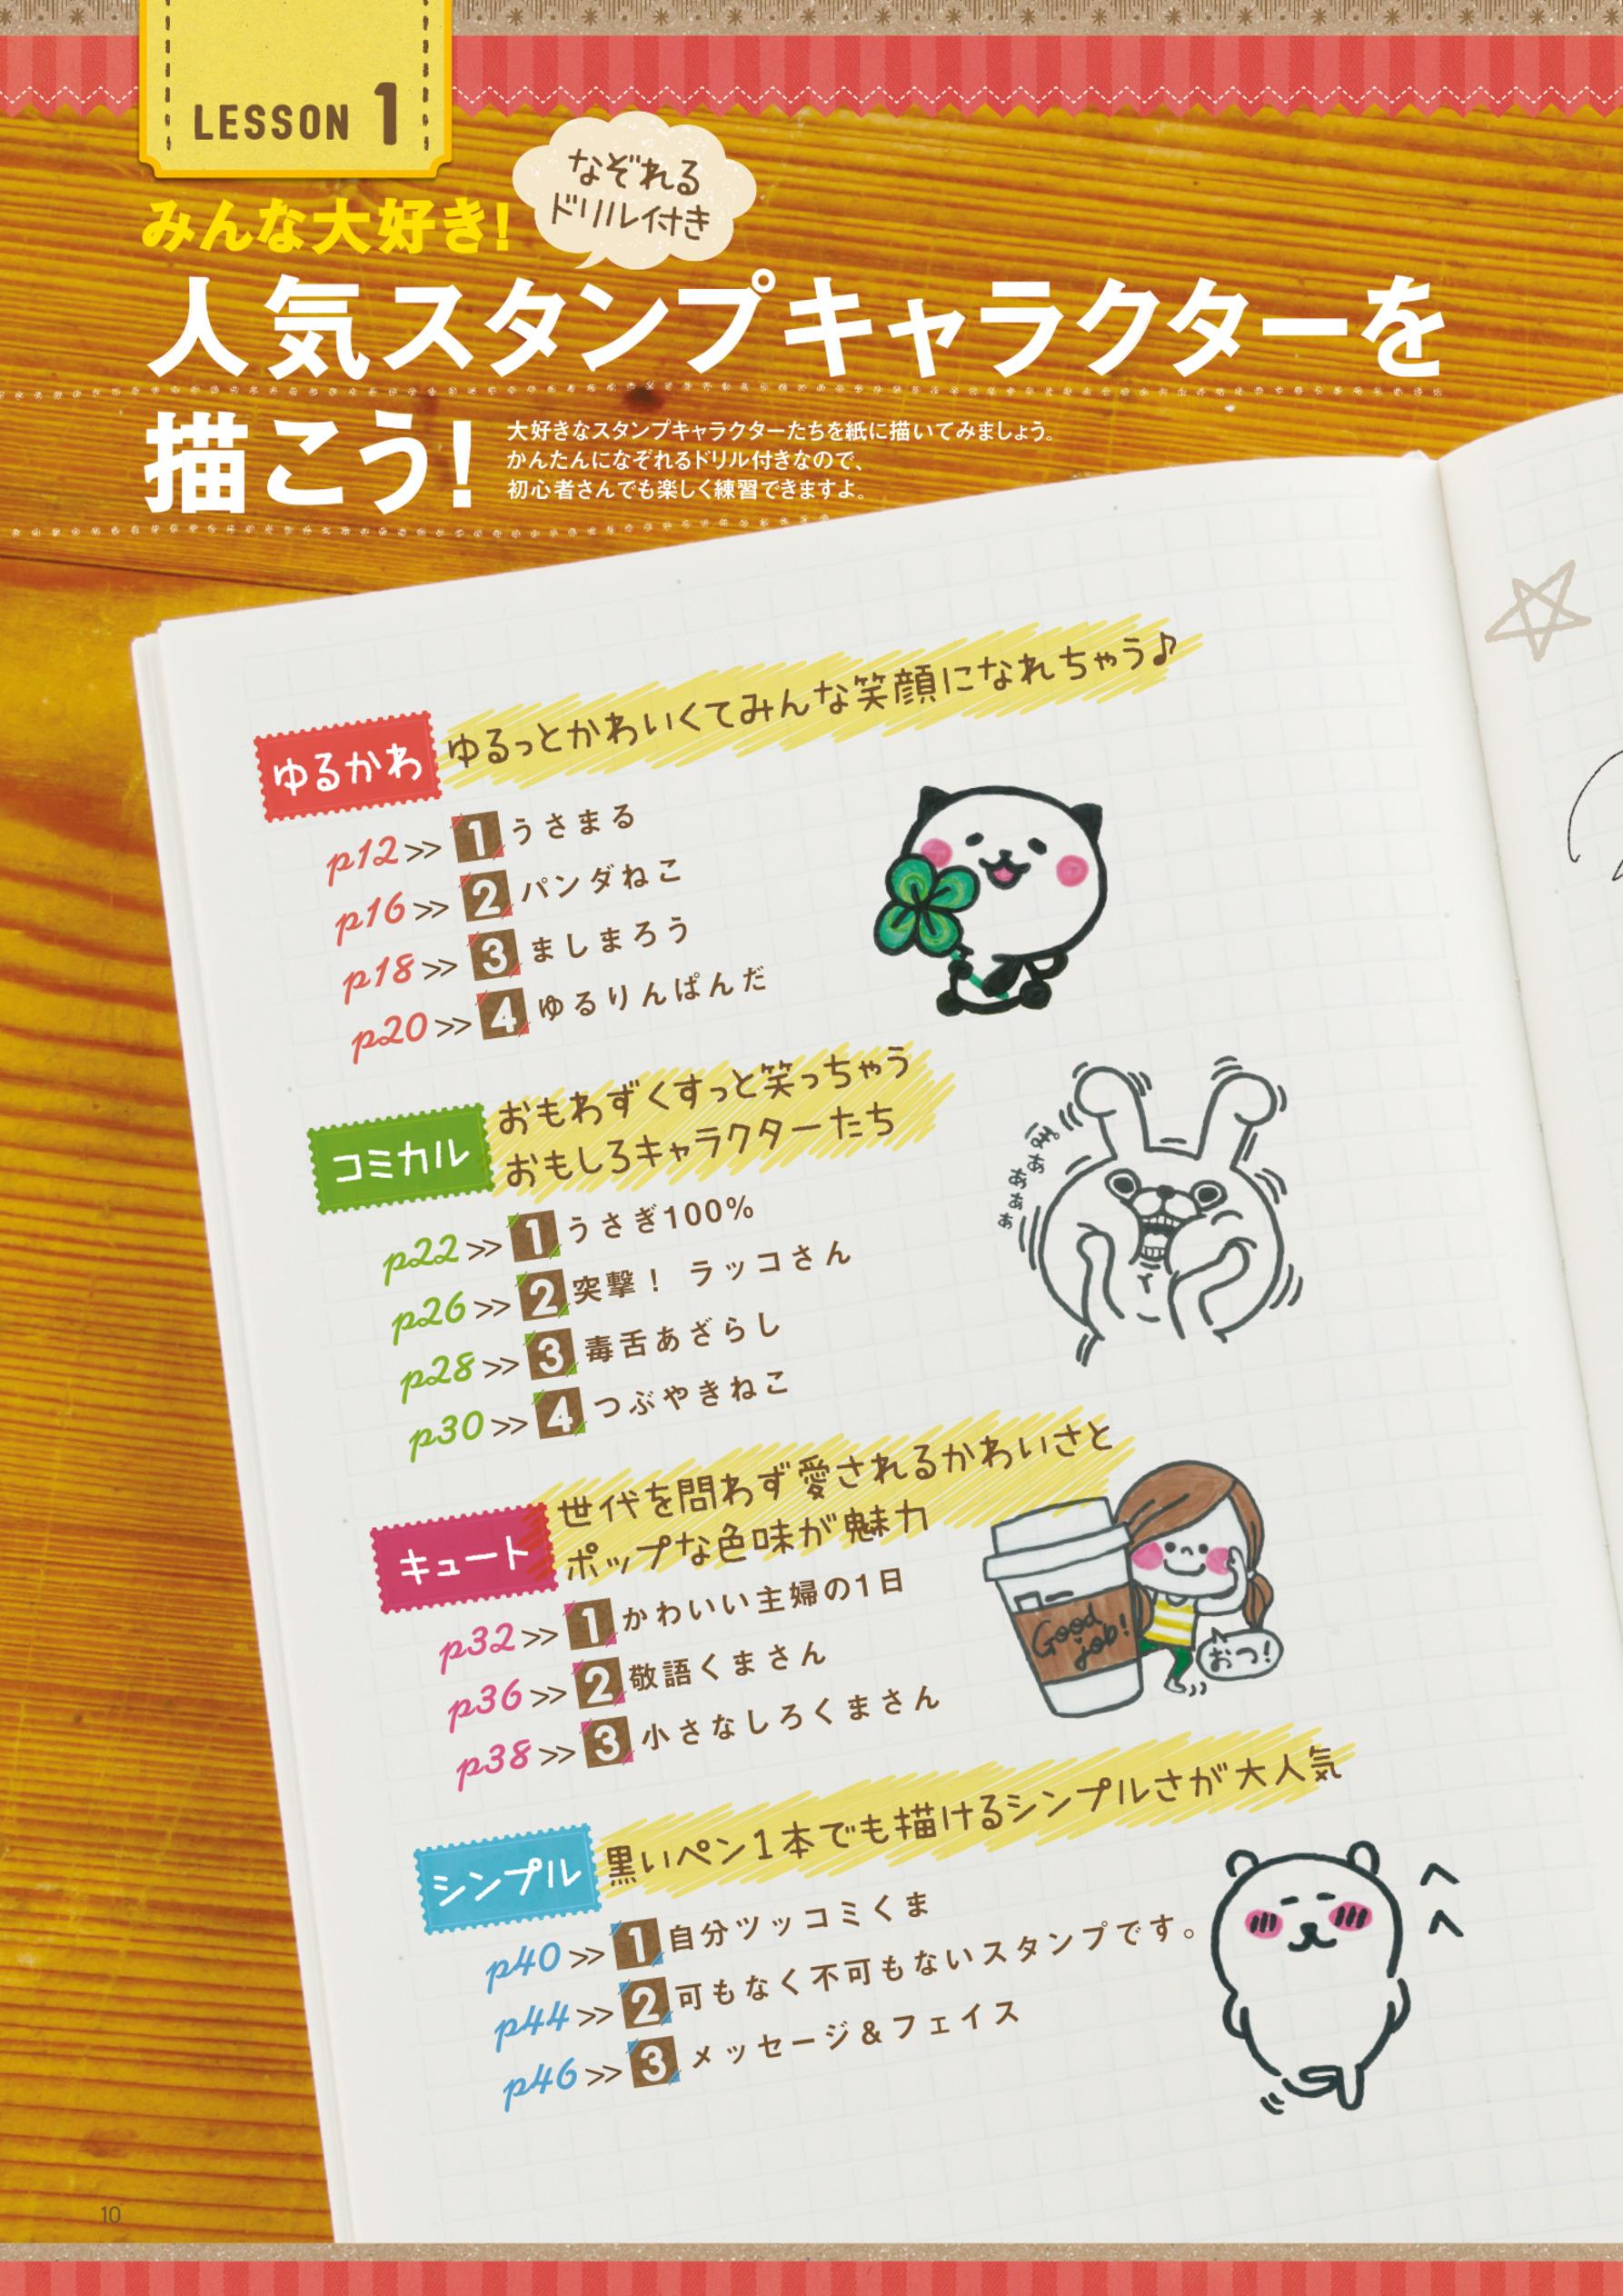 LESSON 1
なぞれる
ドリル付き
みんな大好き!
人気スタンプキャラクターを
描こう!
大好きなスタンプキャラクターたちを紙に描いてみましょう。
かんたんになぞれるドリル付きなので、
初心者さんでも楽しく練習できますよ。
ゆるかわ
ゆるっとかわいくてみんな笑顔になれちゃう♪
p12>> 1 うさまる
p16>> 2 パンダねこ
p18>> 3 ましまろう
p20>> 4 ゆるりんぱんだ
コミカル
おもわずくすっと笑っちゃう
おもしろキャラクターたち
p22>> 1 うさぎ100%
p26>> 2 突撃! ラッコさん
p28>> 3 毒舌あざらし
p30>> 4 つぶやきねこ
キュート
世代を問わず愛されるかわいさと
ポップな色味が魅力
p32>> 1 かわいい主婦の1日
p36>> 2 敬語くまさん
p38>> 3 小さなしろくまさん
Good
job!
おつ!
シンプル
黒いペン1本でも描けるシンプルさが大人気
p40>> 1 自分ツッコミくま
p44>> 2 可もなく不可もないスタンプです。
p46>> 3 メッセージ&フェイス
10